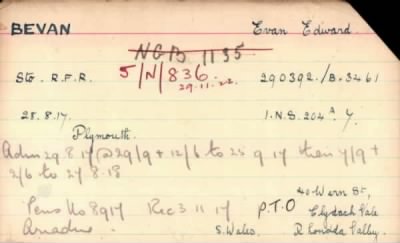 BEVAN Evan Edward.
NCB 1135
Sto. R.F.R. 5/N/836 290392./B.3461
29.11.22
28.8.17 I.N.S. 204a. 7.
Plymouth.
Adm 29.8.17 @ 29/9 + 12/6 to 25.9.17 then 7/9 +
2/6 to 27.8.18
40 Wern St,
Pens No 8917 Rec 3.11.17 P.T.O Clydach Vale
Ariadne. S. Wales, Rhondda Valley.